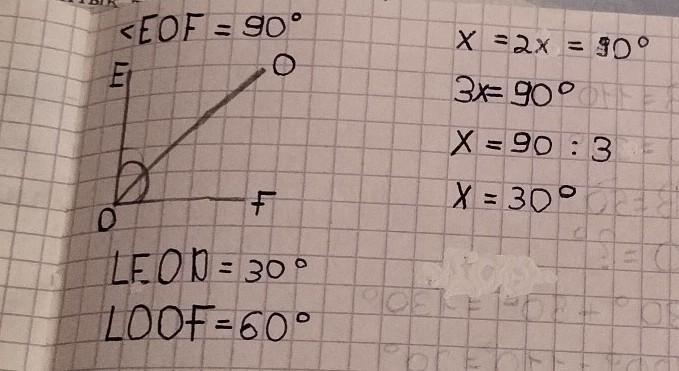 <EOF = 90°
E
O
O
F
LEOD = 30°
LOOF = 60°
X = 2x = 90°
3x = 90°
X = 90 : 3
X = 30°